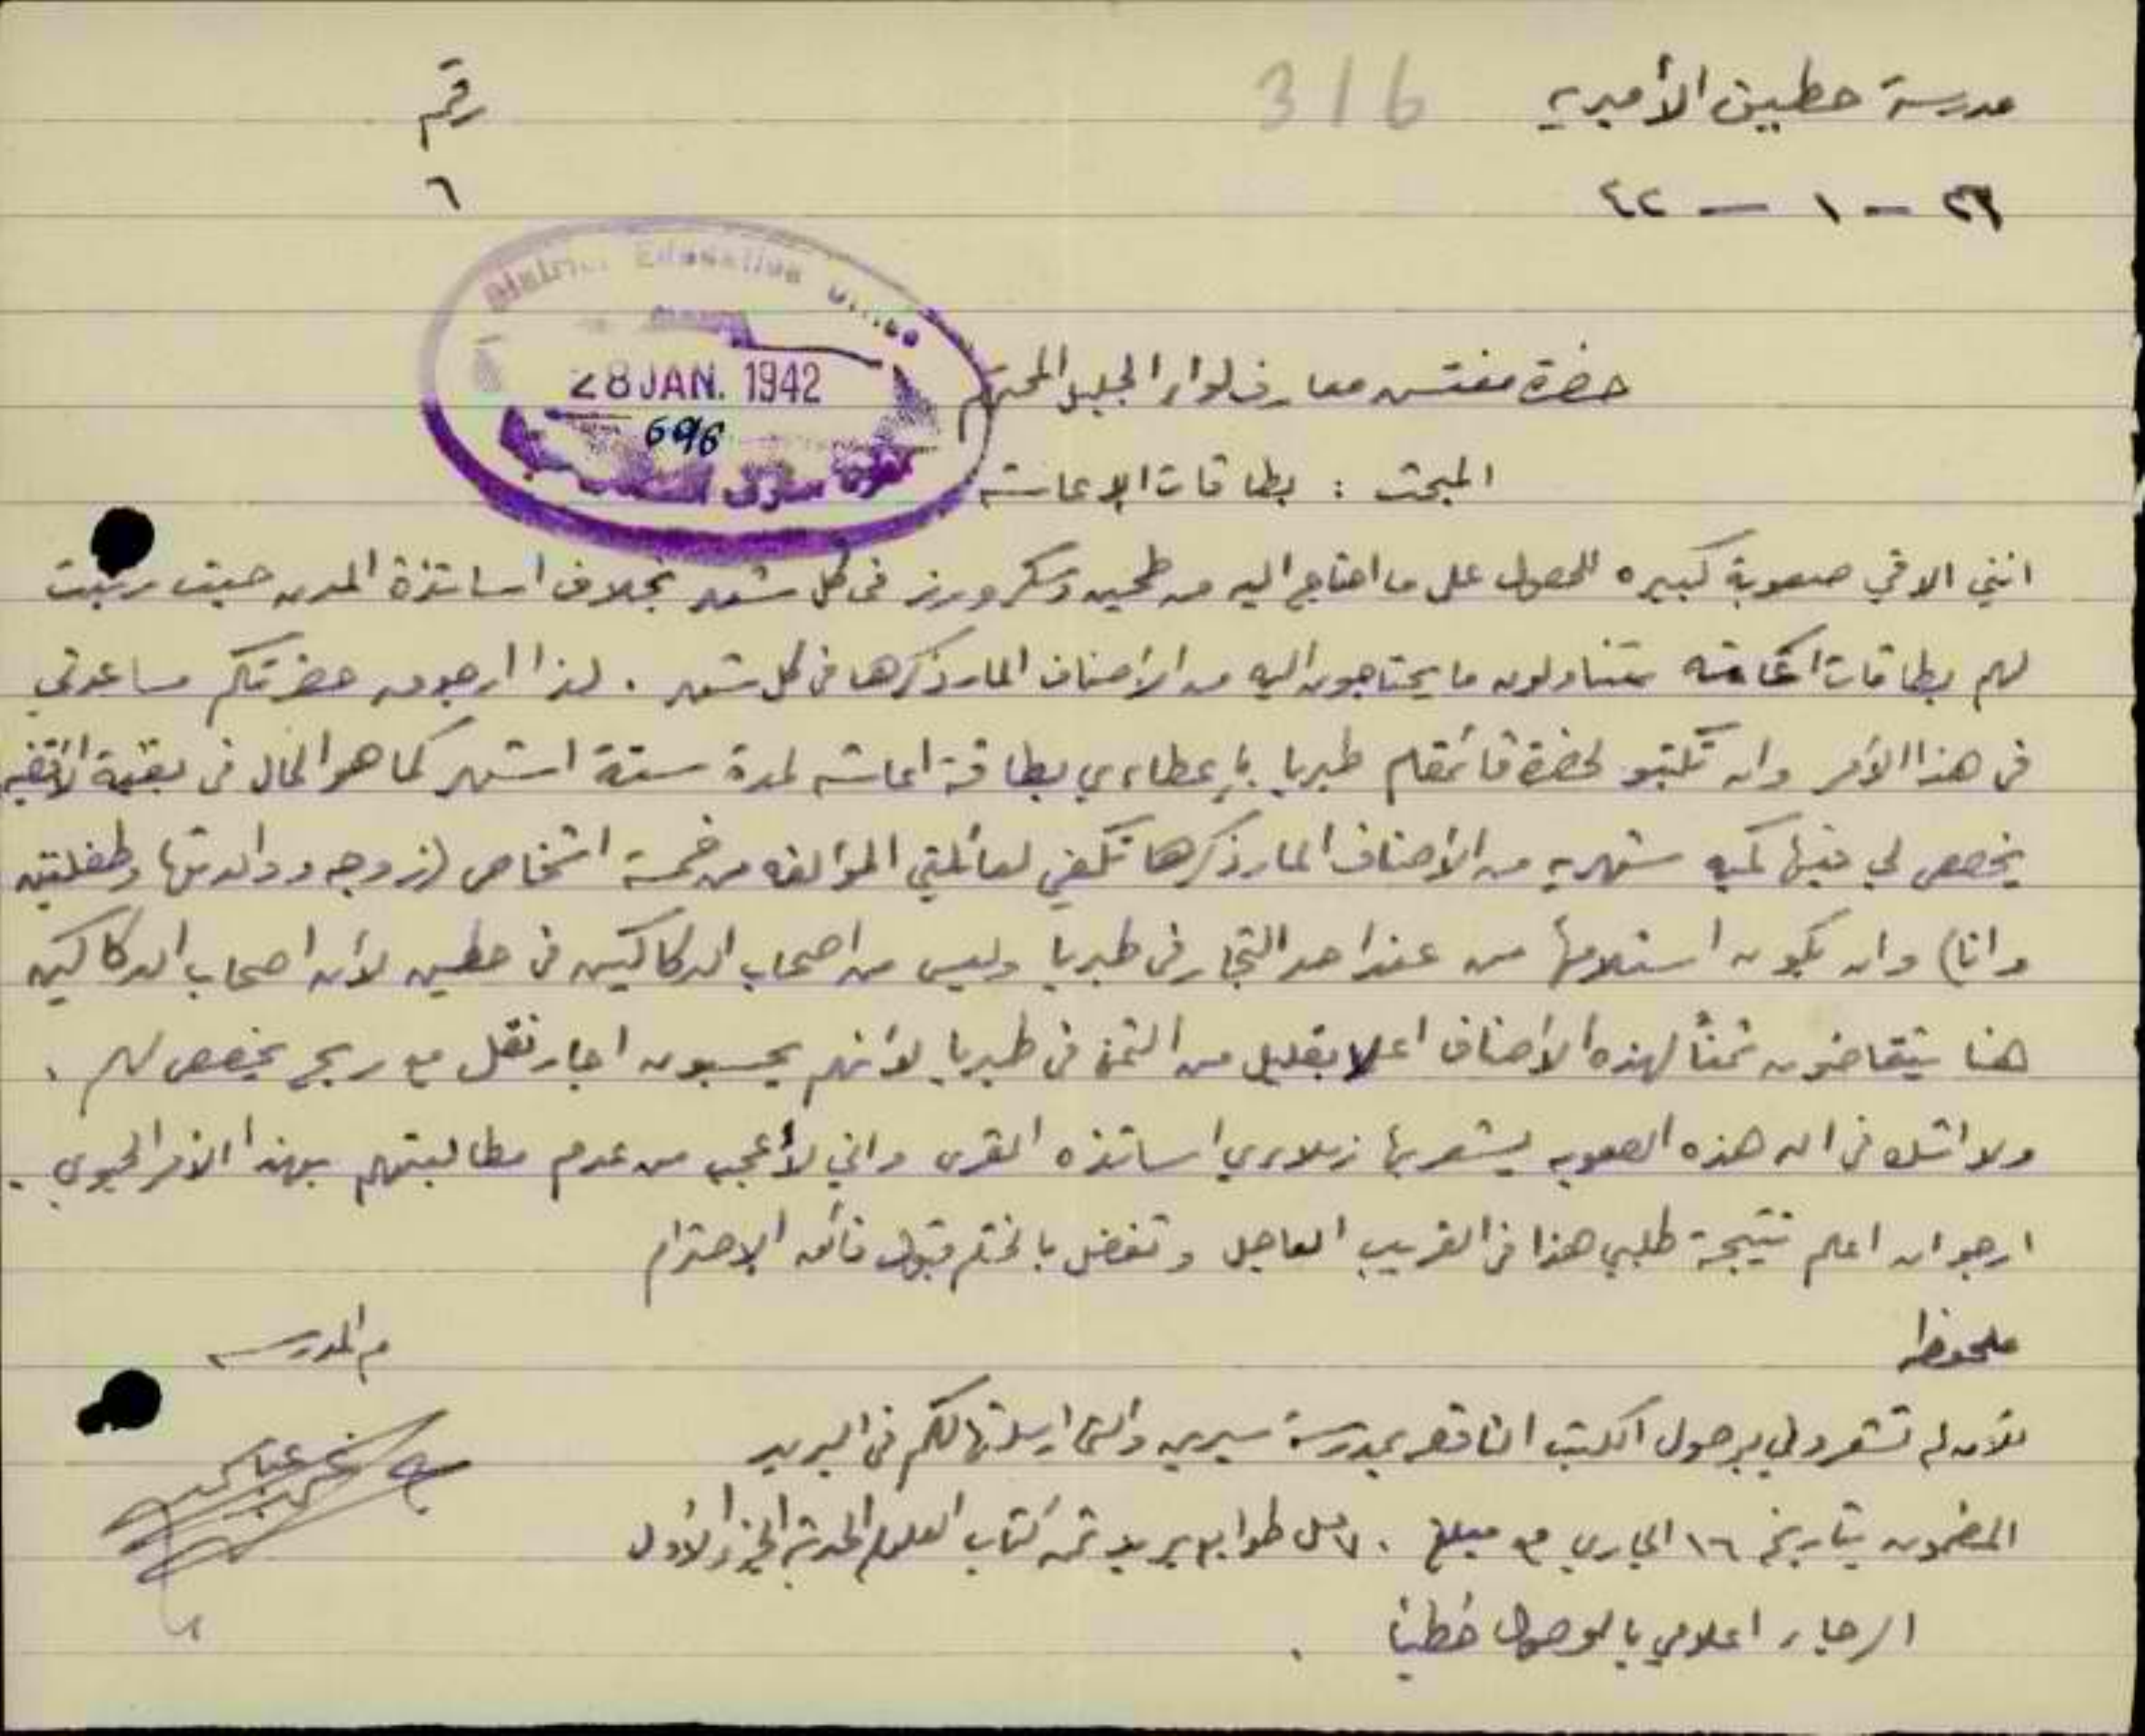 مدرسة حطين الأميريه
316
رقم
٦
٢٦ - ١ - ٤٢
District Education Office
28 JAN. 1942
696
حضرة مفتش معارف لواء الجليل المحترم
المبحث : بطاقات الإعاشه
انني الاقي صعوبة كبيره للحصول على ما احتاج اليه من طحين وسكر ورز في كل شهر بخلاف اساتذة المدن حيث رتبت
لهم بطاقات اعاشه يتناولون ما يحتاجون اليه من الأصناف المار ذكرها في كل شهر . لذا ارجو من حضرتكم مساعدتي
في هذا الأمر وان تكتبو لحضرة قائمقام طبريا بإعطاءي بطاقة اعاشه لمدة ستة اشهر كما هو الحال في بقية الأقضيه
يخصص لي فيها كميه شهريه من الأصناف المار ذكرها تكفي لعائلتي المؤالفه من خمسة اشخاص (زوجه ووالدتها وطفلتين
وانا) وان يكون استلامها من عند احد التجار في طبريا وليس من اصحاب الدكاكين في حطين لأن اصحاب الدكاكين
هنا يتقاضون ثمناً لهذه الأصناف اعلا بقليل من الثمن في طبريا لأنهم يحسبون اجار نقل مع ربح يخصص لهم .
ولا اشك في ان هذه الصعوبه يشعر بها زملاءي اساتذه القرى واني لأعجب من عدم مطالبتهم بهذا الأمر الحيوي .
ارجو ان اعلم نتيجة طلبي هذا في القريب العاجل وتفضل بالختام قبول فائق الإحترام
ملحوظه
م المدرسه
للآن لم تشعروني بوصول الكتب الناقصه بمدرسة سيرين والتي ارسلتها لكم في البريد
المضمون بتاريخ ١٦ الجاري مع مبلغ ٧٠ مل طوابع بريد ثمن كتاب العلوم الحديثه الجزء الأول
الرجاء اعلامي بالوصول خطياً .